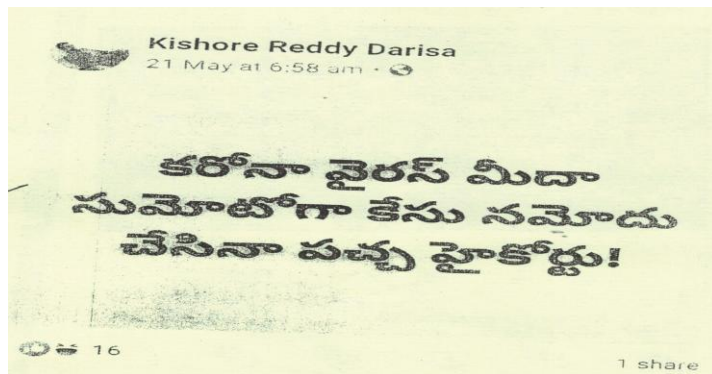 Kishore Reddy Darisa
21 May at 6:58 am
కరోనా వైరస్ మీదా
సుమోటోగా కేసు నమోదు
చేసినా పచ్చ హైకోర్టు!
16
1 share